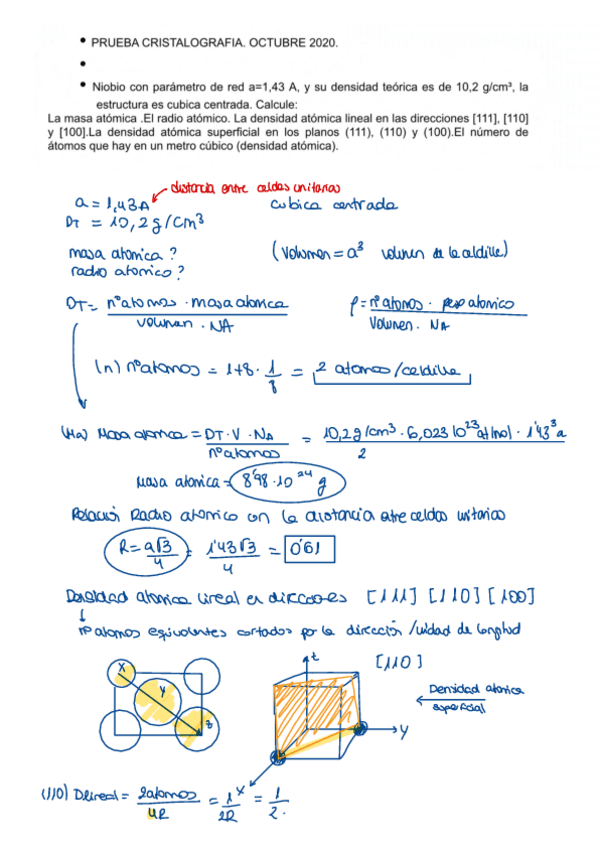 • PRUEBA CRISTALOGRAFIA. OCTUBRE 2020.
•
• Niobio con parámetro de red a=1,43 A, y su densidad teórica es de 10,2 g/cm³, la
estructura es cubica centrada. Calcule:
La masa atómica .El radio atómico. La densidad atómica lineal en las direcciones [111], [110]
y [100].La densidad atómica superficial en los planos (111), (110) y (100).El número de
átomos que hay en un metro cúbico (densidad atómica).
distancia entre celdas unitarias
a = 1,43A cubica centrada
DT = 10,2 g/cm³
masa atomica ? (Volumen = a³ volumen de la celdilla)
radio atomico ?
DT = nº atomos · masa atomica / volumen · NA
ρ = nº atomos · peso atomico / Volumen · NA
(n) nº atomos = 1+8 · 1/8 = 2 atomos/celdilla
(Ma) Masa atomica = DT · V · NA / nº atomos = 10,2g/cm³ · 6,023 10²³ at/mol · 1'43³ a / 2
Masa atomica = 8'98 · 10²⁴ g
Relación Radio atomico con la distancia entre celdas unitarias
R = a√3/4 = 1'43√3/4 = 0'61
Densidad atomica lineal en direcciones [111] [110] [100]
↓
nº atomos equivalentes cortados por la dirección /unidad de longitud
x
y
z
z
[110]
Densidad atomica
superficial
y
x
(110) D lineal = 2atomos/4R = 1/2R = 1/2.